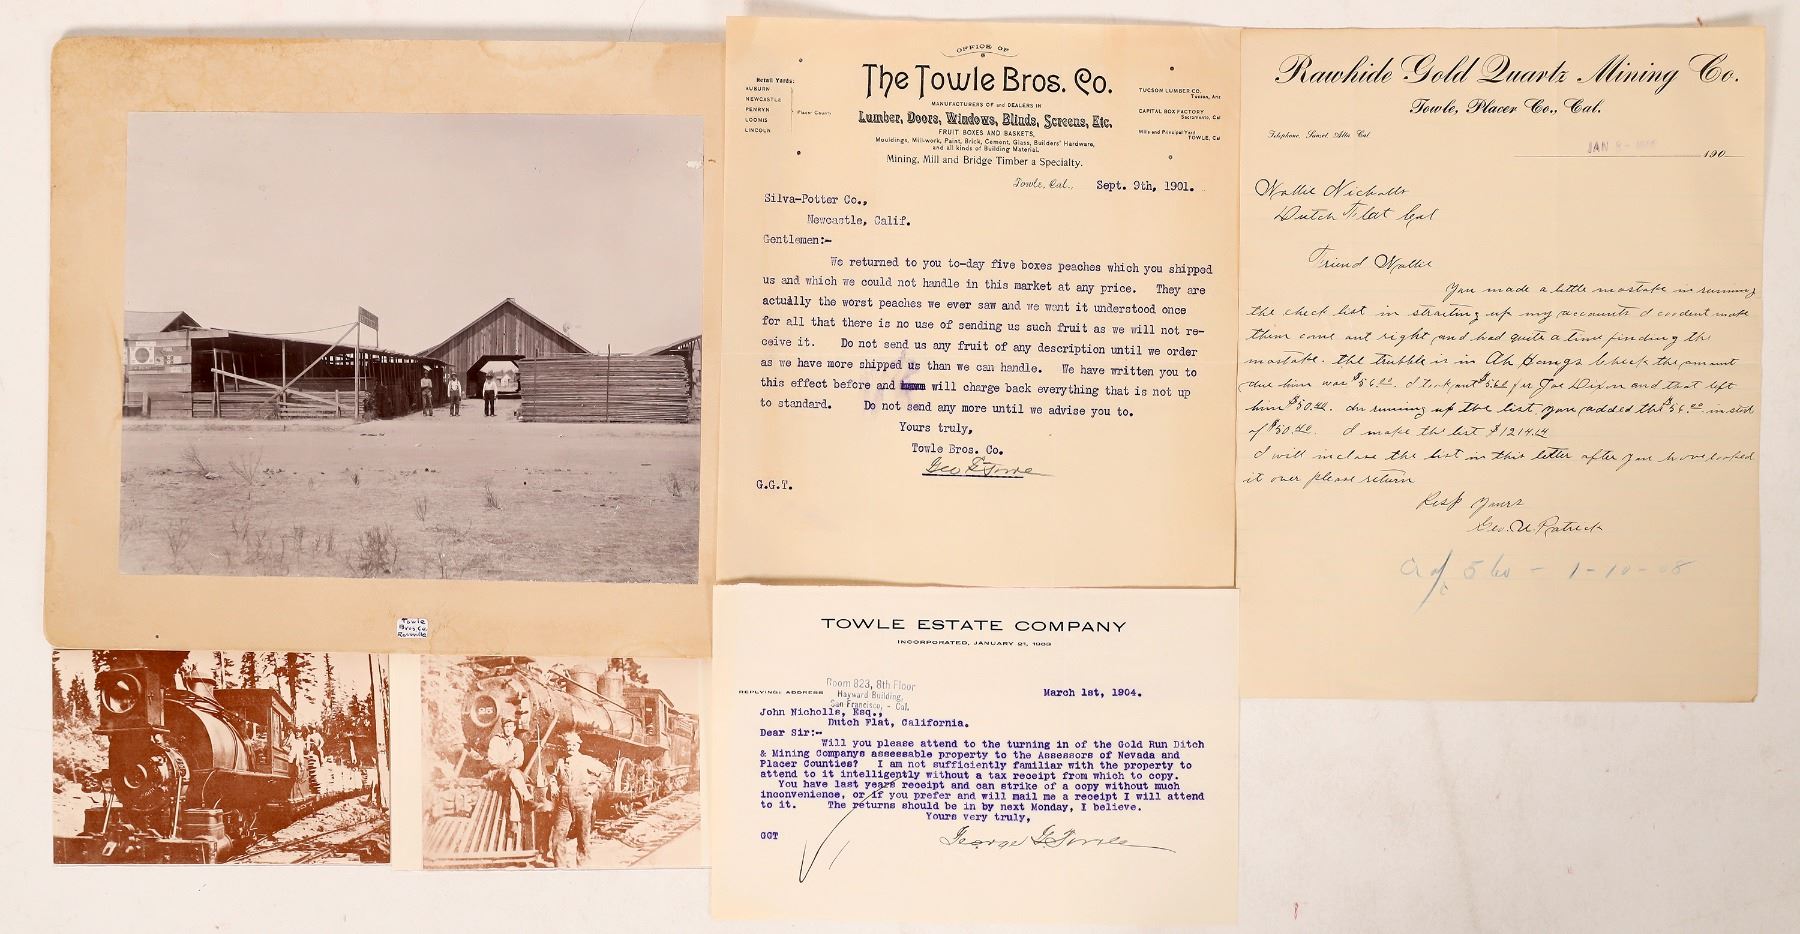 Towle
Bros. Co.
Roseville
25
OFFICE OF
The Towle Bros. Co.
MANUFACTURERS OF and DEALERS IN
Lumber, Doors, Windows, Blinds, Screens, Etc.
FRUIT BOXES AND BASKETS,
Mouldings, Millwork, Paint, Brick, Cement, Glass, Builders' Hardware,
and all kinds of Building Material.
Mining, Mill and Bridge Timber a Specialty.
Retail Yards:
AUBURN
NEWCASTLE
PENRYN
LOOMIS
LINCOLN
Placer County
TUCSON LUMBER CO.
Tucson, Ariz
CAPITAL BOX FACTORY
Sacramento, Cal
Mills and Principal Yard
TOWLE, Cal
Towle, Cal., Sept. 9th, 1901.
Silva-Potter Co.,
Newcastle, Calif.
Gentlemen:-
We returned to you to-day five boxes peaches which you shipped
us and which we could not handle in this market at any price. They are
actually the worst peaches we ever saw and we want it understood once
for all that there is no use of sending us such fruit as we will not re-
ceive it. Do not send us any fruit of any description until we order
as we have more shipped us than we can handle. We have written you to
this effect before and will charge back everything that is not up
to standard. Do not send any more until we advise you to.
Yours truly,
Towle Bros. Co.
Geo G Towle
G.G.T.
TOWLE ESTATE COMPANY
INCORPORATED, JANUARY 21, 1903
REPLYING: ADDRESS
Room 823, 8th Floor
Hayward Building,
San Francisco, - Cal.
March 1st, 1904.
John Nicholls, Esq.,
Dutch Flat, California.
Dear Sir:-
Will you please attend to the turning in of the Gold Run Ditch
& Mining Companys assessable property to the Assessors of Nevada and
Placer Counties? I am not sufficiently familiar with the property to
attend to it intelligently without a tax receipt from which to copy.
You have last years receipt and can strike of a copy without much
inconvenience, or if you prefer and will mail me a receipt I will attend
to it. The returns should be in by next Monday, I believe.
Yours very truly,
GGT
George G. Towle
Rawhide Gold Quartz Mining Co.
Towle, Placer Co., Cal.
Telephone, Sunset, Alta Cal
JAN 8- 190
Wallie Nicholls
Dutch Flat Cal
Friend Wallie
You made a little mostake in running
the check list in straiting up my accounts I coodent make
them come out right and had quite a time finding the
mostake. the trubble is in Ah Hangs Check the amount
due him was $56.00. I took out $5.60 for Joe Dixon and that left
him $50.40. In runing up the list you added the $56.00 in sted
of $50.40. I make the list $1214.64
I will inclose the list in this letter after you have looked
it over please return
Resp Yours
Geo. W Patrick
5 60 - 1-10-08